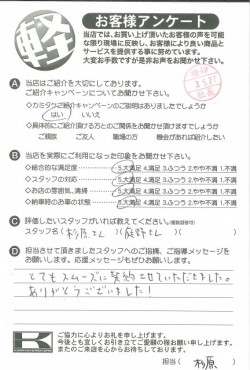 軽
お客様アンケート
当店では、お買い上げ頂いたお客様の声を可能
な限り現場に反映し、お客様により良い商品と
サービスを提供する事に努めています。
大変お手数ですが是非お声をお聞かせ下さい。
A 当店はご紹介を大切にしております。
ご紹介キャンペーンについてお聞かせ下さい。
◇カミタケご紹介キャンペーンのご説明はありましたでしょうか
はい いいえ
◇具体的にご紹介頂ける方とのご関係をお聞かせ頂けますでしょうか
ご親族 ご友人 職場の方 機会があれば紹介したい
B 当店を実際にご利用になった印象をお聞かせ下さい。
◇総合的な満足度 5.大満足 4.満足 3.ふつう 2.やや不満 1.不満
◇スタッフの対応 5.大満足 4.満足 3.ふつう 2.やや不満 1.不満
◇お店の雰囲気、清掃 5.大満足 4.満足 3.ふつう 2.やや不満 1.不満
◇納車時のお車の状態 5.大満足 4.満足 3.ふつう 2.やや不満 1.不満
C 評価したいスタッフがいれば教えてください。(複数回答可)
スタッフ名(杉原さん)(庭野さん)
D 担当させて頂きましたスタッフへのご指摘、ご指導メッセージを
お願いします。応援メッセージもぜひお願いします。
とてもスムーズに契約させていただきました。
ありがとうございました!
K
ご協力に心よりお礼を申し上げます。
今後とも宜しくお引き立てご愛顧の程お願い申し上げます。
またのご来店を心からお待ちしております。
担当(杉原)